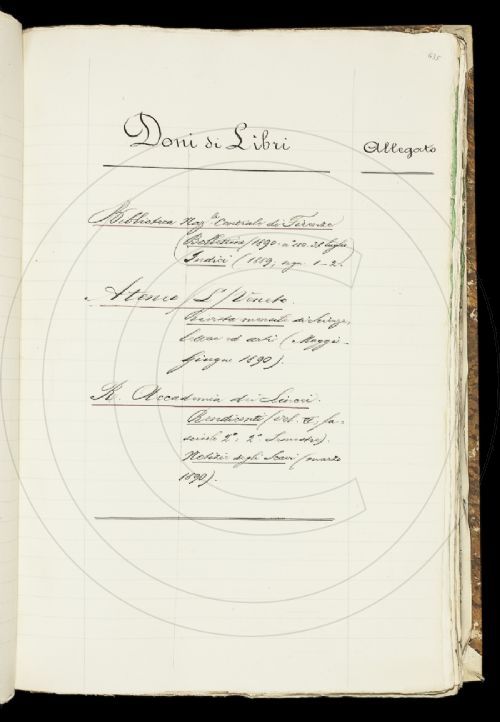 635
Doni di Libri
Allegato
Biblioteca Naz.le Centrale di Firenze
Bollettino (1890. n° 110. 31 luglio
Indici (1889, sgn. 1-2.
Ateneo L'/Veneto.
Rivista mensile di scienze,
lettere ed arti (Maggio-
Giugno 1890).
R. Accademia dei Lincei.
Rendiconti (vol. 6°; fa-
scicolo 2°, 2° Semestre).
Notizie degli Scavi (marzo
1890).